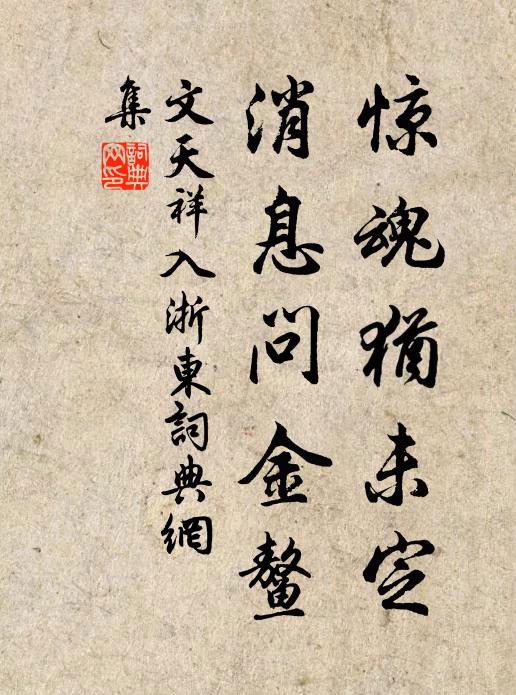 惊魂猶未定
消息问金鳌
文天祥入浙東詞典網
集
詞典網印